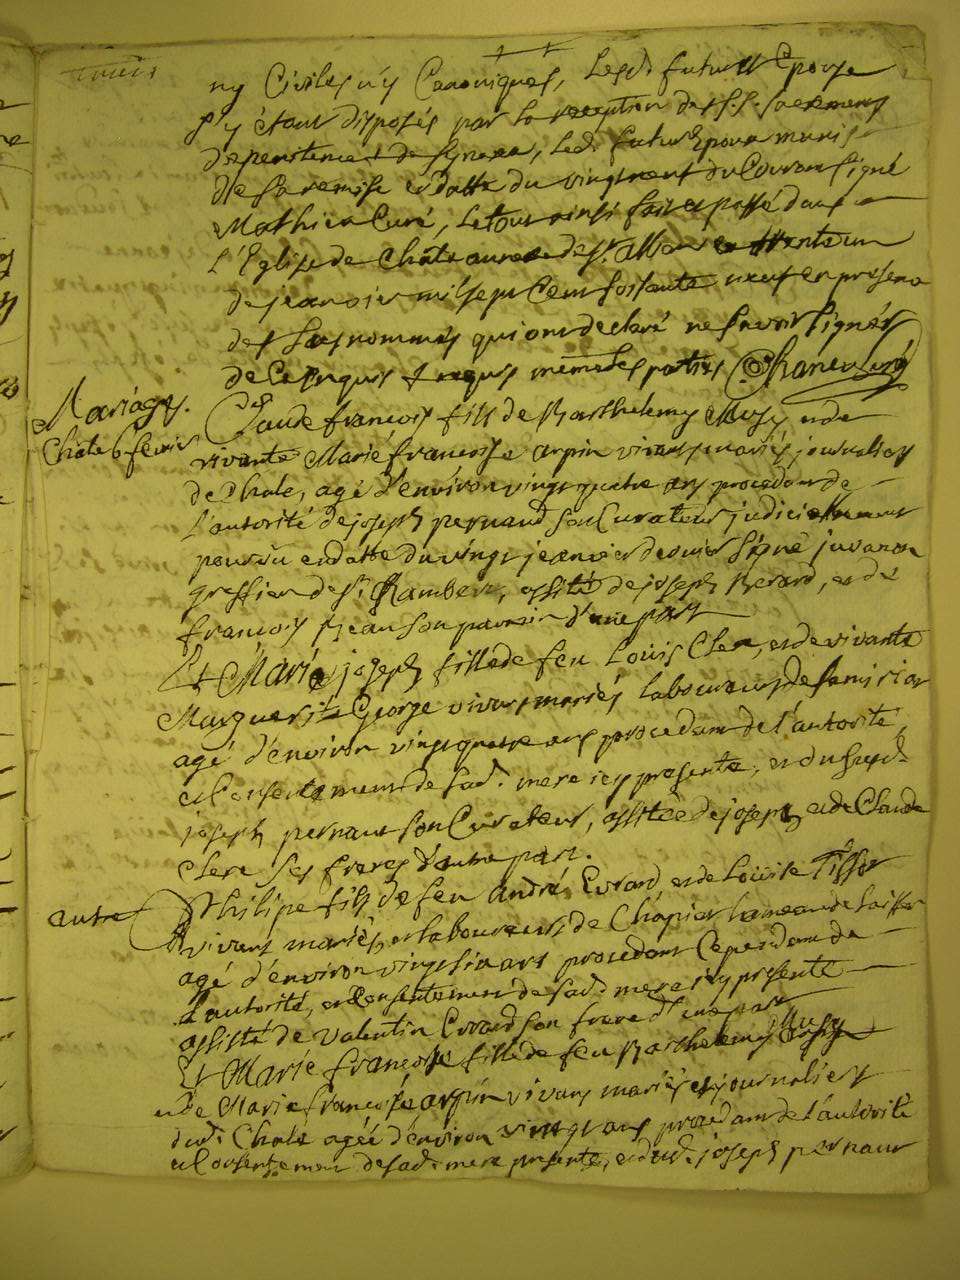 ny Civiles n'y Canoniques, Lesd. futurs Epoux
s'y étant disposés par la reception des s.s. sacremens
de penitence & de synaxe, led. futur Epoux munis
de sa remise en datte du vingt neuf du Couran signé
Mathieu Curé, le tout ainsi fait et passé dans
l'Eglise de Chateauneuf de st. Alban le trente un
de jeanvier mil sept Cent soissante neuf en presence
des susnommés qui ont declaré ne savoir signer
de ce enquis & requis mêmes les parties
Mariages.
Chale 6 fevrier
Claude françois fils de Barthelemy Musy et de
vivante Marie françoise arpin vivans mariés journaliers
de Chale, agé d'environ vingt quatre ans procedant de
l'autorité de joseph pernaud son Curateur judiciellement
pourvu en datte du vingt jeanvier dernier signé juvanon
greffier de st. Rambert, assité de joseph Berard, et de
françois Bean son parrain d'une part
Et Marie joseph fille de feu Louis Clere, et de vivante
Marguerite George vivans mariés laboureurs de
agé d'environ vingt quatre ans procedant de l'autorité
et Consentement de sad. mere icy presente, et du susd.
joseph pernaut son Curateur, assitée de joseph et de Claude
Clere ses freres d'autre part.
autre
Philipe fils de feu André Evrard, et de Louise Tissot
vivans mariés, et laboureurs de Chapiat hameau de
agé d'environ vingt six ans procedant Cependant de
l'autorité, et Consentement de sad. mere icy presente
assisté de Valentin Evrard son frere d'une part
Et Marie françoise fille de feu Barthelemy Musy
et de Marie françoise arpin vivans mariés et journaliers
dud. Chale agée d'environ vingt ans procedant de l'autorité
et Consentement de sad. mere presente, et dud. joseph pernaut